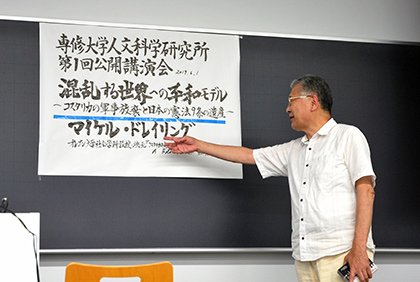 専修大学人文科学研究所
第1回公開講演会 2019.6.1
混乱する世界への平和モデル
～コスタリカの軍事放棄と日本の憲法9条の遺産～
マイケル・ドレイリング